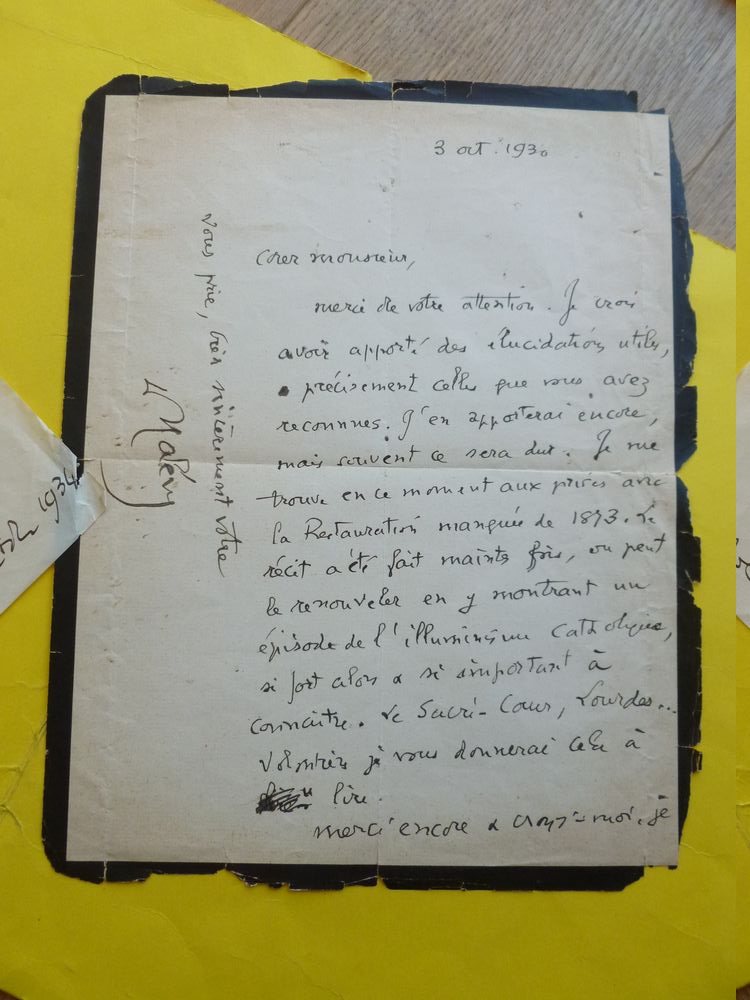 3 oct. 1930
Cher monsieur,
merci de votre attention. Je crois
avoir apporté des élucidations utiles,
précisément celles que vous avez
reconnues. J'en apporterai encore,
mais souvent ce sera dur. Je me
trouve en ce moment aux prises avec
la Restauration manquée de 1873. Le
récit a été fait maints fois, on peut
le renouveler en y montrant un
épisode de l'illuminisme catholique,
si fort alors & si important à
connaître. Le Sacré-Cœur, Lourdes...
Volontiers je vous donnerai cela à
lire.
merci encore & croyez-moi, je
vous prie, très sincèrement votre
D Halévy
1934